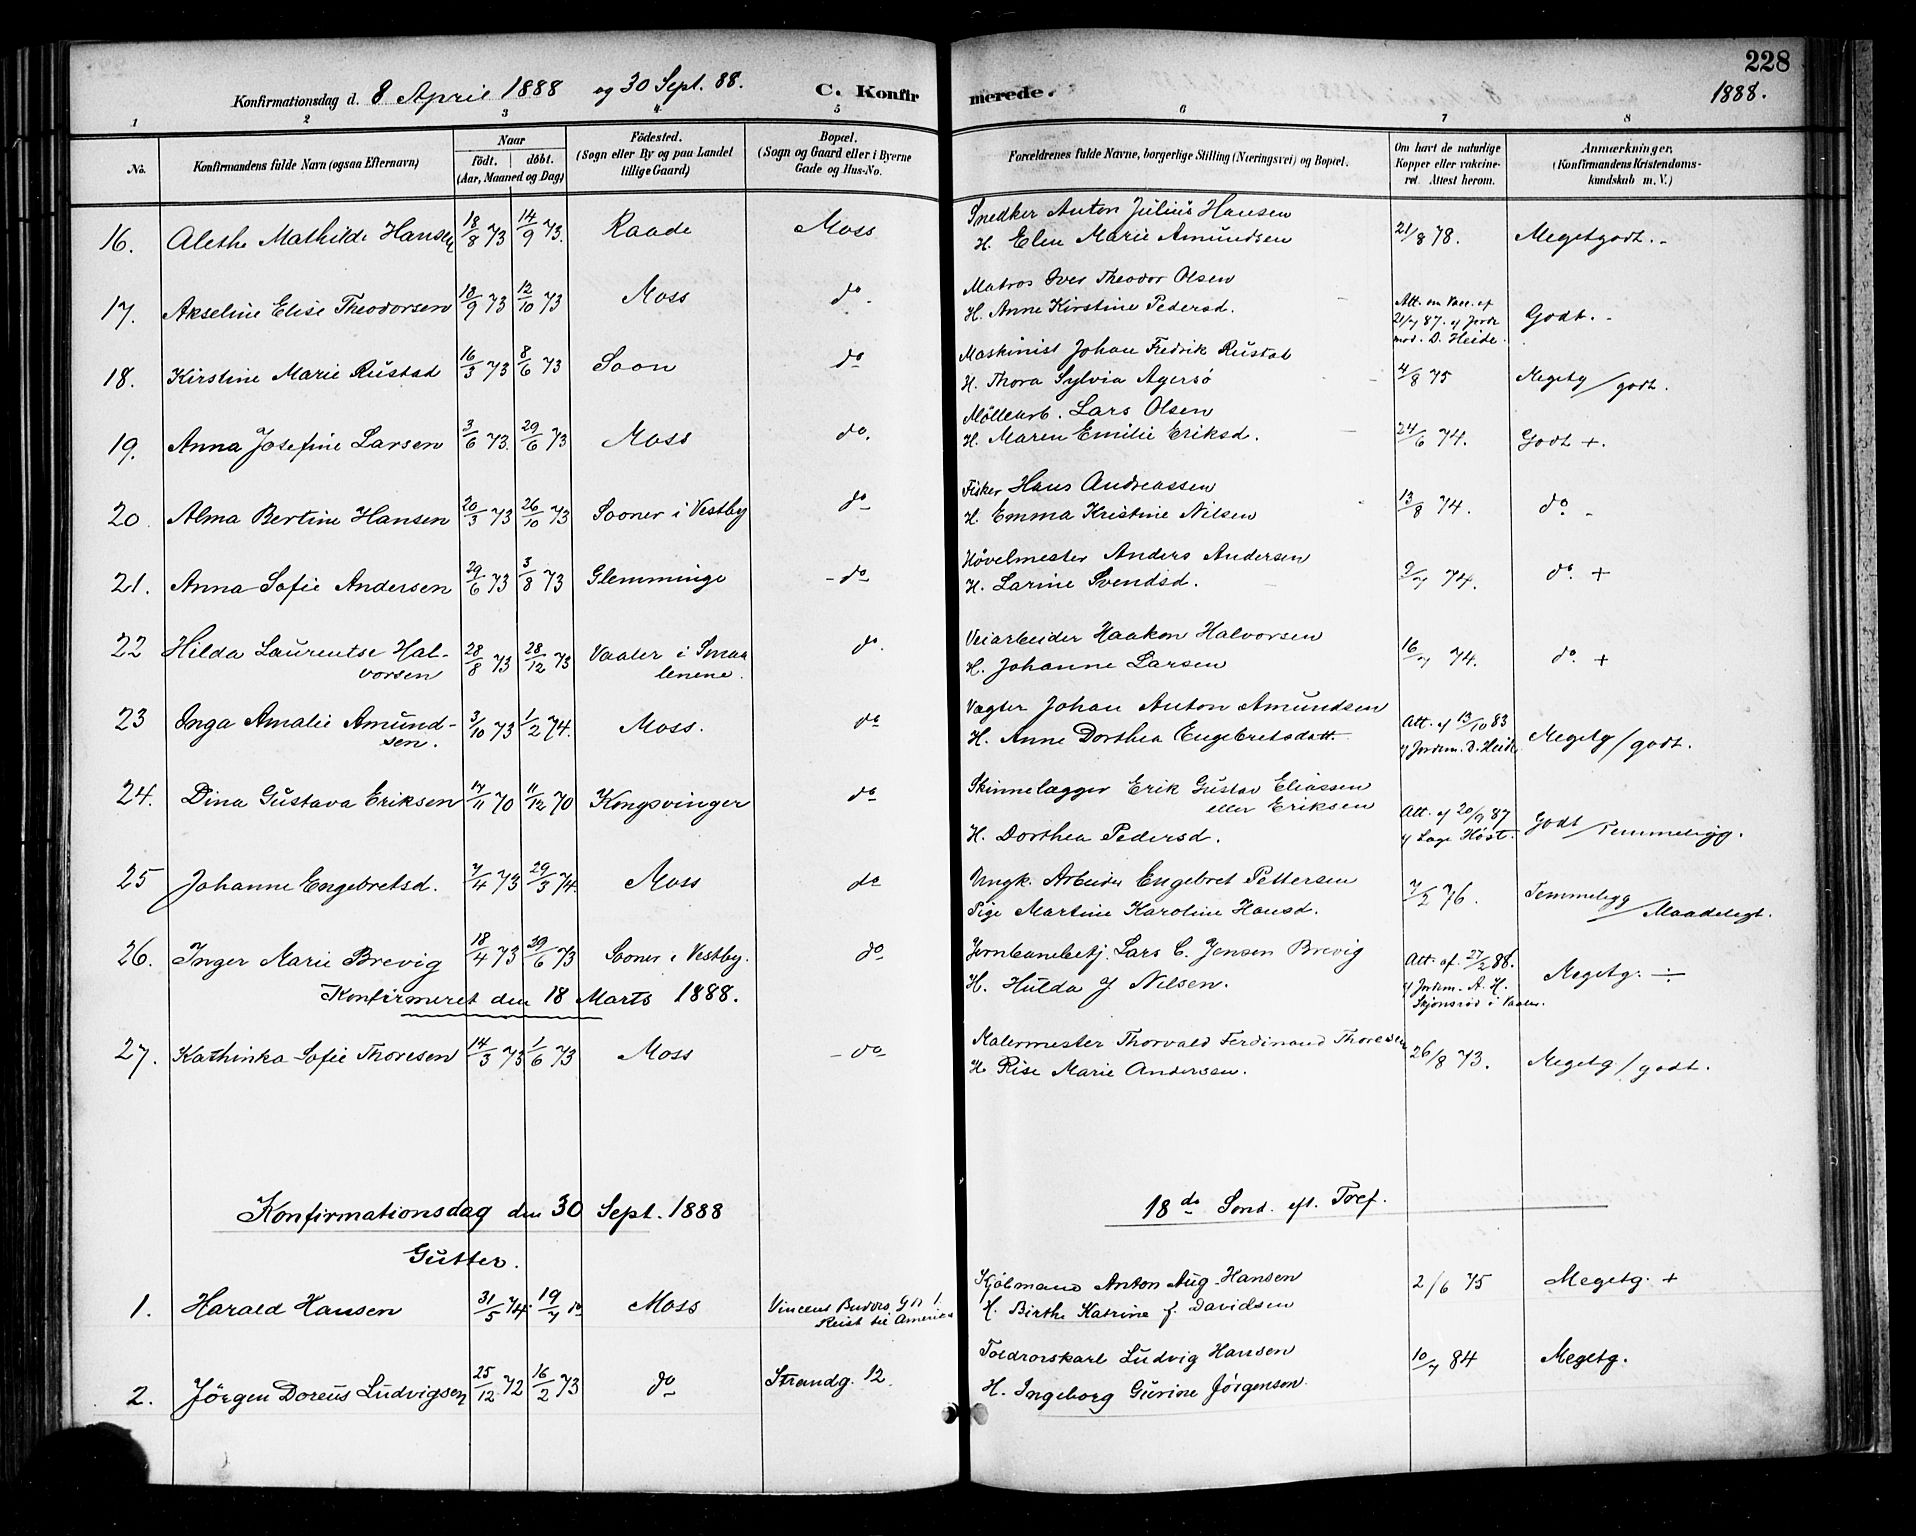 228
Konfirmationsdag d. 8 April 1888 og 30 Sept. 88. C. Konfirmerede. 1888.
1 2 3 4 5 6 7 8
No. Konfirmandens fulde Navn (ogsaa Efternavn) Naar födt. döbt. (Aar, Maaned og Dag) Födested. (Sogn eller By og paa Landet tillige Gaard) Bopæl. (Sogn og Gaard eller i Byerne Gade og Hus-No. Forældrenes fulde Navne, borgerlige Stilling (Næringsvei) og Bopæl. Om havt de naturlige Kopper eller vakcineret. Attest herom. Anmærkninger, (Konfirmandens Kristendomskundskab m. V.)
16. Alethe Mathilde Hansen 18/8 73 14/9 73. Raade Moss Snedker Anton Julius Hansen
H. Elen Marie Amundsen 21/8 78. Megetgodt. -
17. Akseline Elise Theodorsen 18/9 73 12/10 73 Moss do. Matros Iver Theodor Olsen
H. Anne Kirstine Pedersd. Att. om Vacc. af 21/7 87. af Jordmod. D. Heide. Godt. -
18. Kirstine Marie Rustad 16/3 73 8/6 73 Soon do Maskinist Johan Fredrik Rustad
H. Thora Sylvia Agersö 4/8 75 Megetg/godt.
19. Anna Josefine Larsen 3/6 73. 29/6 73 Moss do. Møllearb. Lars Olsen
H. Maren Emilie Eriksd. 24/6 74. Godt +.
20. Alma Bertine Hansen 20/3 73 26/10 73 Sooner i Vestby do Fisker Hans Andreassen
H. Emma Kristine Nilsen 13/8 74. do. -
21. Anna Sofie Andersen 29/6 73 3/8 73 Glemminge - do Høvelmester Anders Andersen
H. Larine Svendsd. 9/7 74. do. +
22 Hilda Laurentse Halvorsen 28/8 73 28/12 73 Vaaler i Smaalenene. do. Veiarbeider Haakon Halvorsen
H. Johanne Larsen 16/7 74. do. +
23 Inga Amalie Amundsen. 3/10 73 1/2 74. Moss. do Vægter Johan Anton Amundsen
H. Anne Dorthea Engebretsdatt. Att. af 13/10 83 af Jordm. D. Heide Megetg/godt.
24. Dina Gustava Eriksen 17/11 70 11/12 70 Kongsvinger do Skinnelægger Erik Gustav Eliassen
eller Eriksen
H. Dorthea Pedersd. Att. af 20/9 87 af Læge Høst. Godt/Temmeligg.
25 Johanne Engebretsd. 7/4 73 29/3 74. Moss do Ungk. Arbeider Engebret Pettersen
Pige Martine Karoline Hansd. 7/2 76. Temmeligg/Maadeligt.
26. Inger Marie Brevig 18/4 73 29/6 73 Sooner i Vestby. do Jernbanebetj. Lars C. Jensen Brevig
H. Hulda J Nilsen. Att. af. 27/2 88. af Jordm. A. H. Skjonsrød i Vaaler. Megetg. ÷
Konfirmeret den 18 Marts 1888.
27. Kathinka Sofie Thoresen 14/3 73 1/6 73 Moss - do Malermester Thorvald Ferdinand Thoresen
H. Rise Marie Andersen. 26/8 73. Megetg/godt.
Konfirmationsdag den 30 Sept. 1888 18de Sönd. eft. Tref.
Gutter.
1. Harald Hansen 31/5 74. 19/7 do Moss Vincens Budors. G No 1. Reist til Amerika Kjölmand Anton Aug. Hansen
H. Birthe Katrine f. Davidsen 2/6 75 Megetg. +
2. Jörgen Doreus Ludvigsen 25/12 72 16/2 73 do Strandg. 12. Toldrorskarl Ludvig Hansen
H. Ingeborg Gurine Jørgenson. 10/7 84 Megetg.